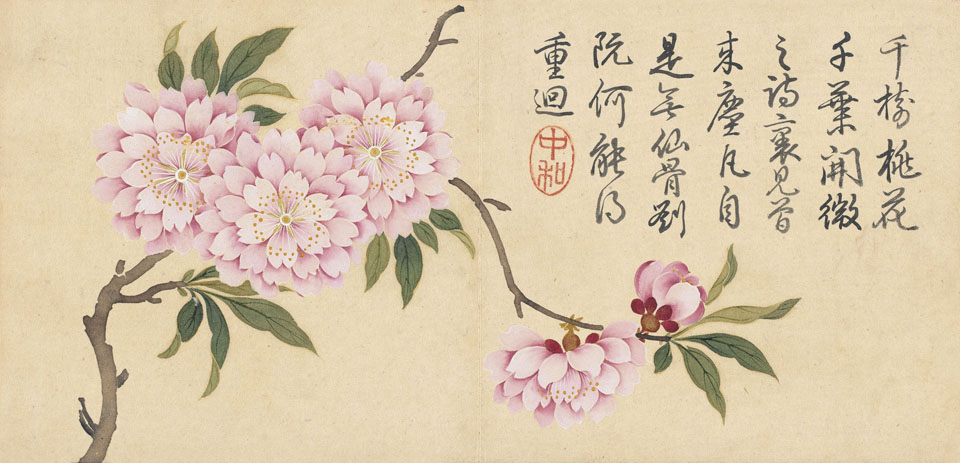 千樹桃花
千葉開微
之詩裏見曾
来塵凡自
是無仙骨劉
阮何能得
重迴
中和